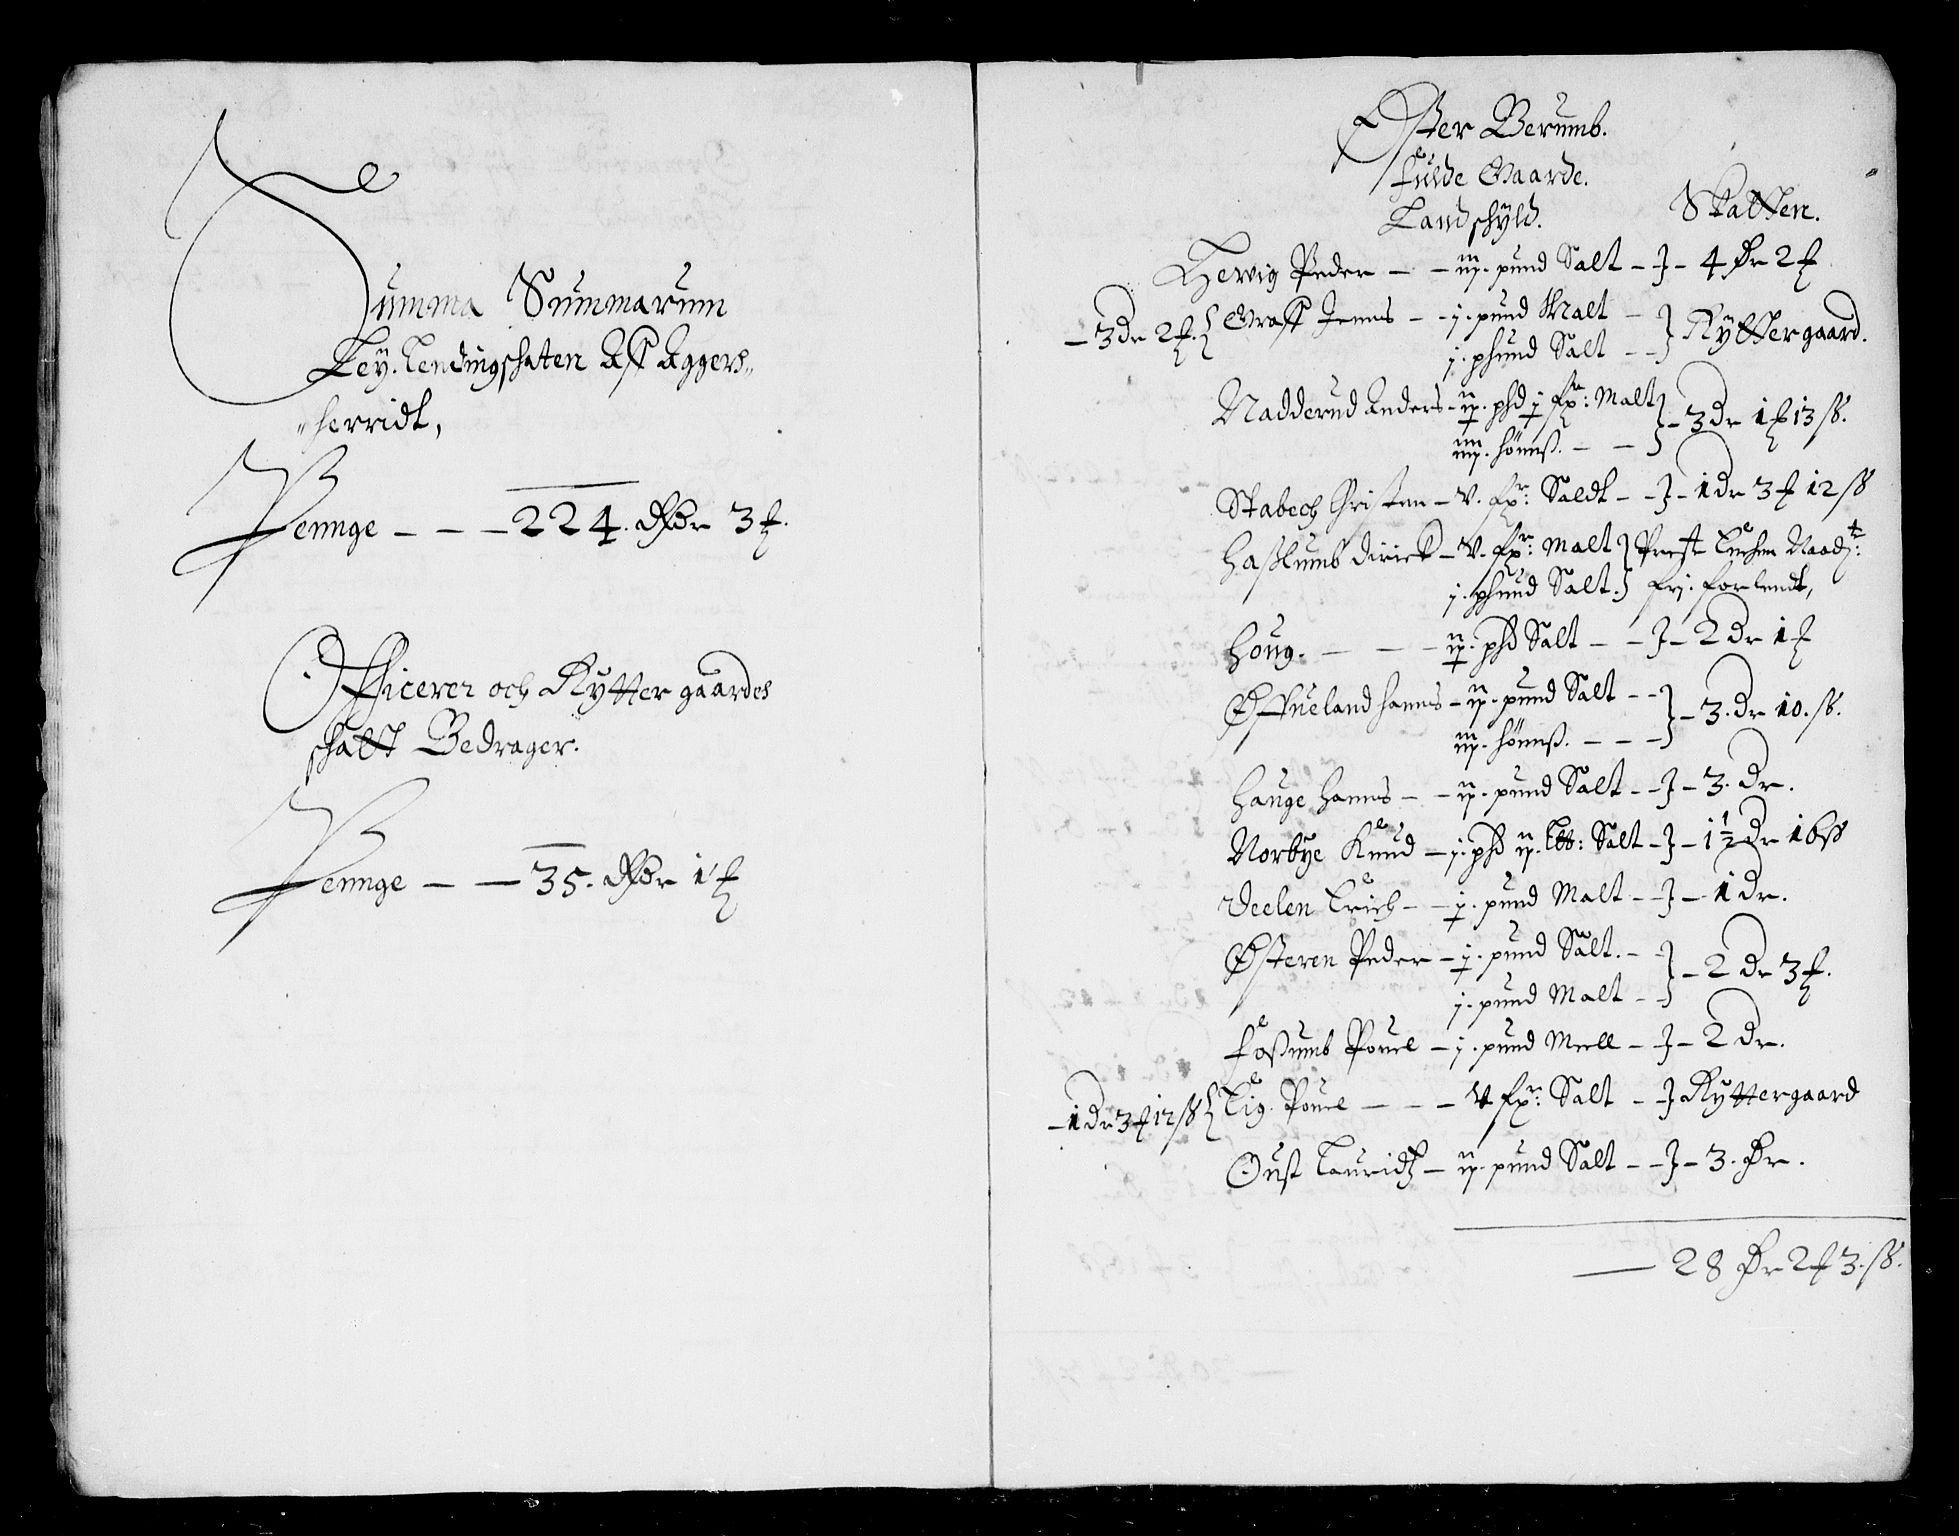 Summa Summarum
Ley. Lendingschaten Aff Aggers-
-herridt,
Pennge - - - 224. Rdr 3 ₰.
Officerer och Rytter gaardes
schatt Bedrager.
Pennge - - 35. Rdr 1 ₰
Øster Berumb.
fulde Gaarde.
Landschyld. Skatten.
Hewig Peder - - iij. pund Salt - } - 4 Dr 2 ₰
- 3 dr 2 ₰. { Graff Jenns - - j. pund Malt - } Ryttergaard.
j. phund Salt - -
Nadderud Anders - ij. phd j fxr: Malt } - 3 dr 1 ₰ 13 ß.
iiij. hønnß. - -
Stabech Christen - V. fxr: Saldt - - } - 1 dr 3 ₰ 12 ß
Haßlumb Dirick - V. fxr: Malt } Prest
j. phund Salt. } frj. forlendt,
Houg. - - - ij. phd Salt - - } - 2 dr 1 ₰
Øffueland Hanns - ij. pund Salt - - } - 3. dr 10. ß.
iij. hønnß. - - -
Hauge Hanns - - ij. pund Salt - - } - 3. dr.
Norbye Knud - j. phd ij. lbb: Salt - } - 1½ dr 16 ß
Veelen Erich - - j. pund Malt - - } - 1 dr.
Østeren Peder - j. pund Salt. - } - 2 dr 3 ₰.
j. pund Malt -
Foßumb Pouel - j. pund Meell - } - 2 dr.
- 1 dr 3 ₰ 12 ß { Eig. Pouel - - - V fxr: Salt - } Ryttergaard
Oust Lauridtz - ij. pund Salt - - } - 3. Dr.
- 28 Dr 2 ₰ 3. ß.